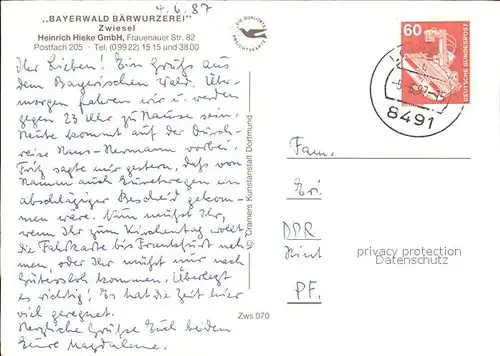 4.6.87
„BAYERWALD BÄRWURZEREI"
Zwiesel
Heinrich Hieke GmbH, Frauenauer Str. 82
Postfach 205 · Tel. (0 99 22) 15 15 und 38 00
DIE QUALITÄTS
ANSICHTSKARTE
60
DEUTSCHE BUNDESPOST
8491
Ihr Lieben! Ein Gruß aus
dem Bayerischen Wald. Über-
morgen fahren wir u. werden
gegen 23 Uhr zu Hause sein.
Heute kommt auf der Durch-
reise Hans-Hermann vorbei.
Fritz sagte mir gestern, daß von
Hamm auch Euretwegen ein
abschlägiger Bescheid gekom-
men wäre. Nun müßt Ihr,
wenn Ihr zum Kirchentag wollt
die Fahrkarte bis Frankfurt neh-
men, oder Ihr müßt nur nach
Gütersloh kommen. Überlegt
es richtig! Es hat die Zeit hier
viel geregnet.
Herzliche Grüße Euch beiden
Eure Magdalene.
© Cramers Kunstanstalt Dortmund
Zws 070
Fam.
DPR
PF.
privacy protection
watermark